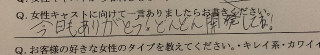 Q. 女性キャストに向けて一言ありましたらお書きください。
今日もありがとう!どんどん開発してね!
Q. お客様の好きな女性のタイプを教えてください。・キレイ系・カワイイ